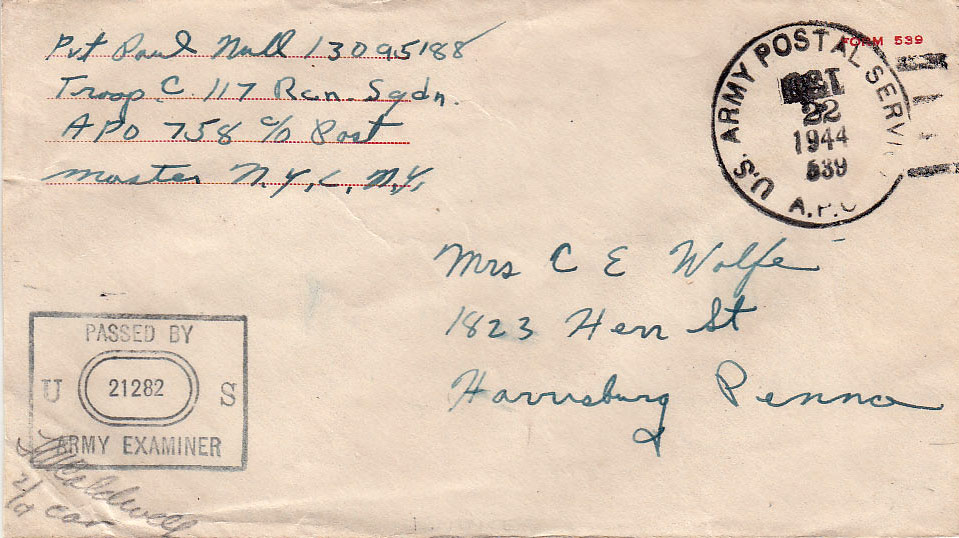 Pvt Paul Null 13095188
Troop C. 117 Rcn. Sqdn.
APO 758 c/o Post
master N.Y., C., N.Y.
FORM 539
U.S. ARMY POSTAL SERVI
OCT
22
1944
539
A.P.O
Mrs C E Wolfe
1823 Herr St
Harrisburg Penna
PASSED BY
U 21282 S
ARMY EXAMINER
Caldwell